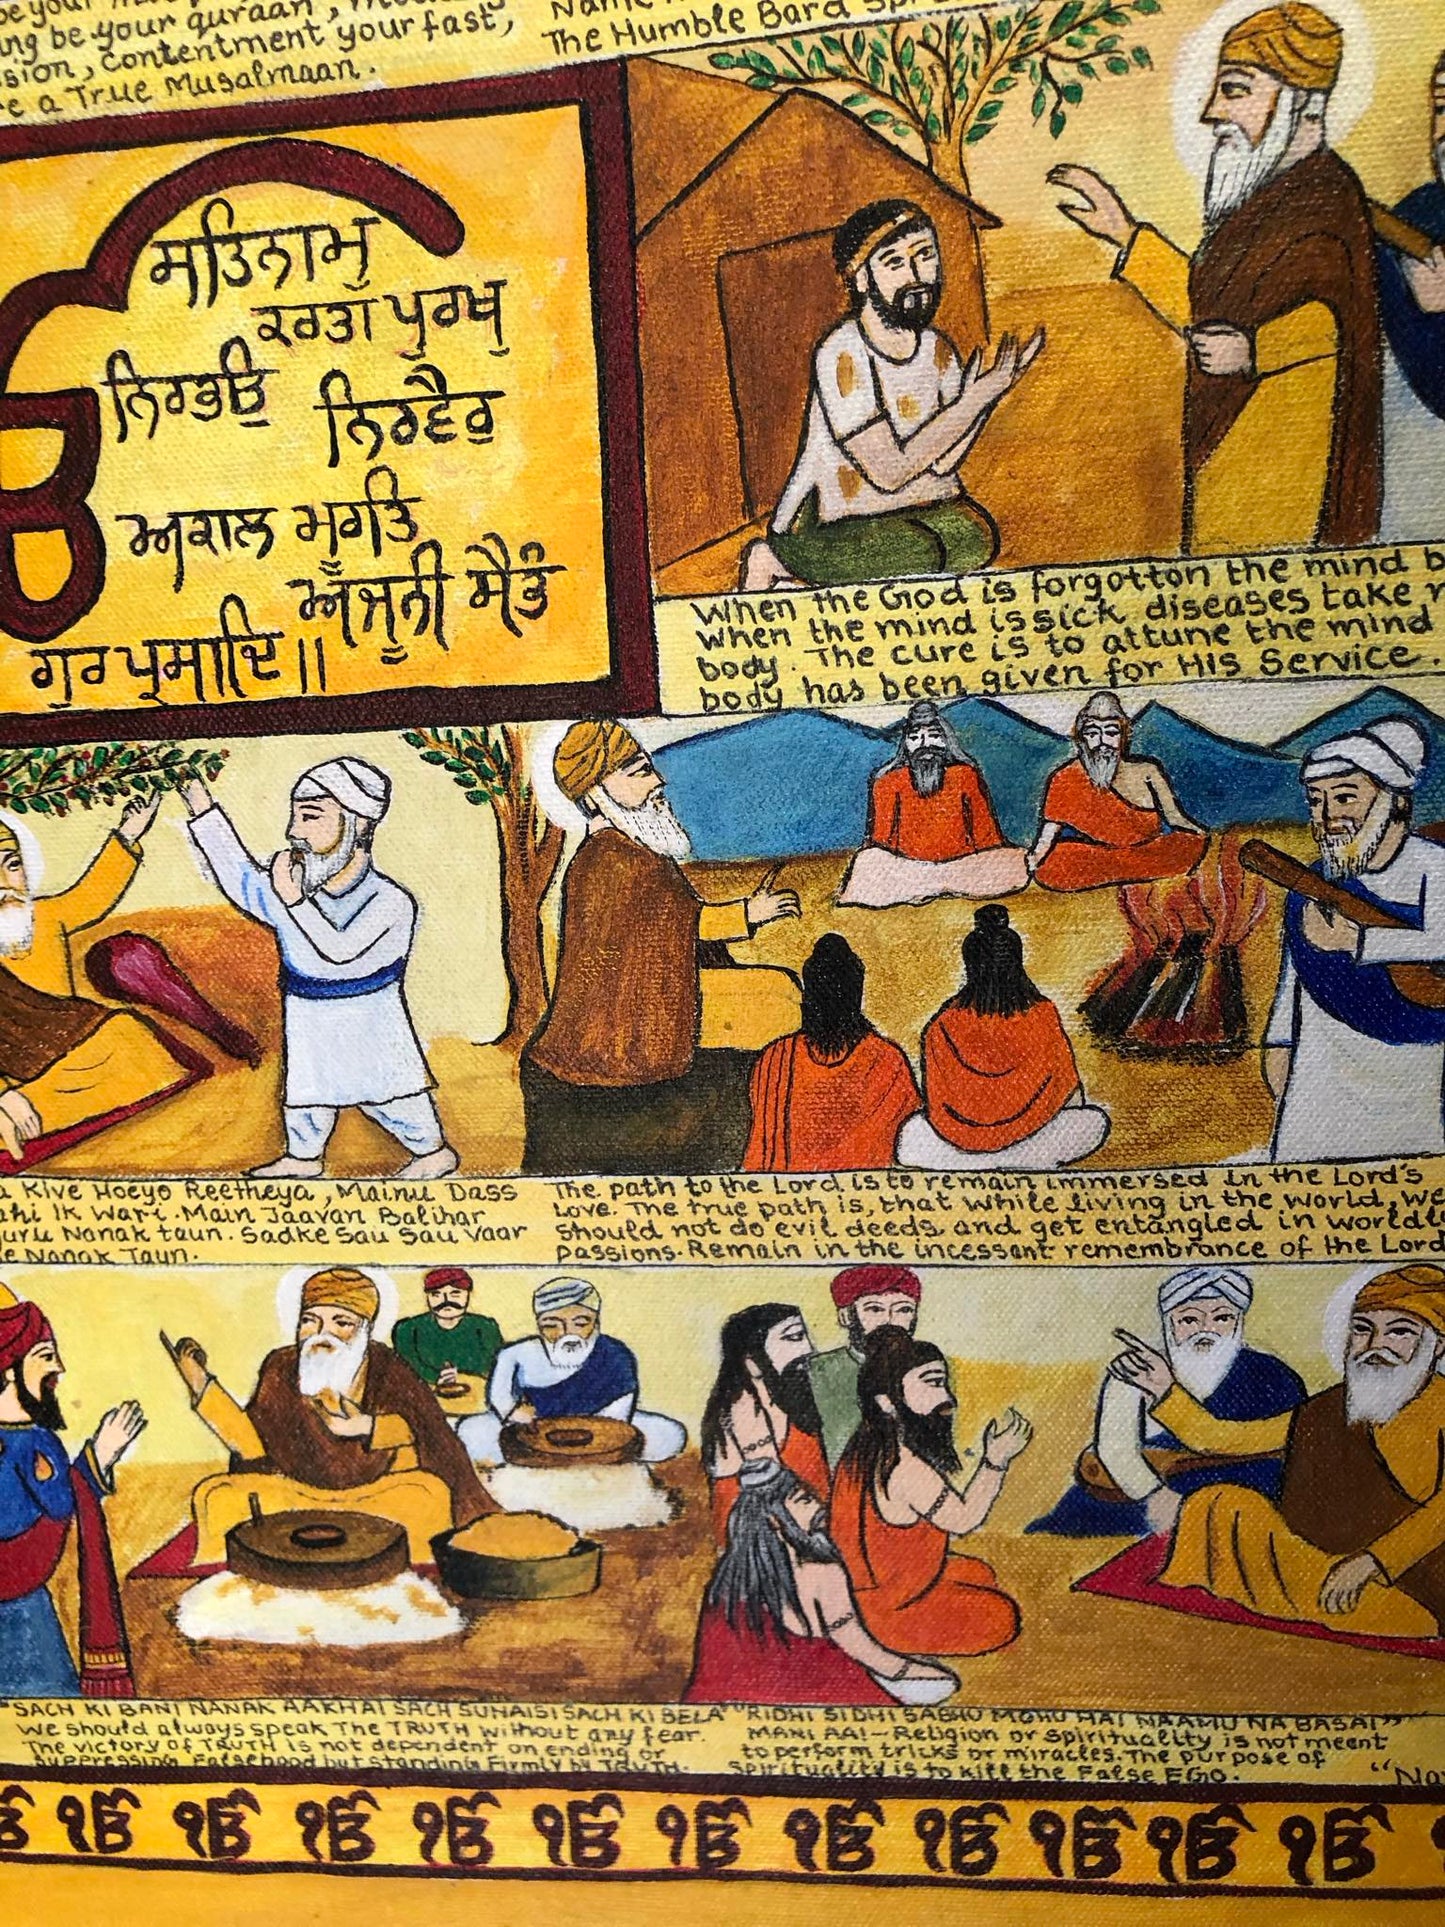 be your
ing be your quraan,
sion, contentment your fast,
e a True Musalmaan.
The Humble Bard
ਸਤਿਨਾਮੁ
ਕਰਤਾ ਪੁਰਖੁ
ਨਿਰਭਉ
ਨਿਰਵੈਰੁ
ਅਕਾਲ ਮੂਰਤਿ
ਅਜੂਨੀ ਸੈਭੰ
ਗੁਰ ਪ੍ਰਸਾਦਿ॥
When the God is forgotton the mind b
When the mind is sick diseases take r
body. The cure is to attune the mind
body has been given for HIS Service.
a Kive Hoeyo Reetheya, Mainu Dass
ahi Ik Wari. Main Jaavan Balihar
uru Nanak taun. Sadke Sau Sau Vaar
e Nanak Taun.
The path to the Lord is to remain immersed in the Lord's
Love. The true path is, that while living in the world, we
Should not do evil deeds and get entangled in worldl
passions. Remain in the incessant remembrance of the Lord
"SACH KI BANI NANAK AAKHAI SACH SUNAISI SACH KI BELA"
We should always speak The TRUTH without any fear.
The victory of TRUTH is not dependent on ending or
Suppressing Falsehood but standing Firmly by TRUTH.
"RIDHI SIDHI SABHU MOHU HAI NAAMU NA BASAI"
MANI AAI - Religion or Spirituality is not meant
to perform tricks or miracles. The purpose of
Spirituality is to kill the False EGO.
ੴ ੴ ੴ ੴ ੴ ੴ ੴ ੴ ੴ ੴ ੴ ੴ